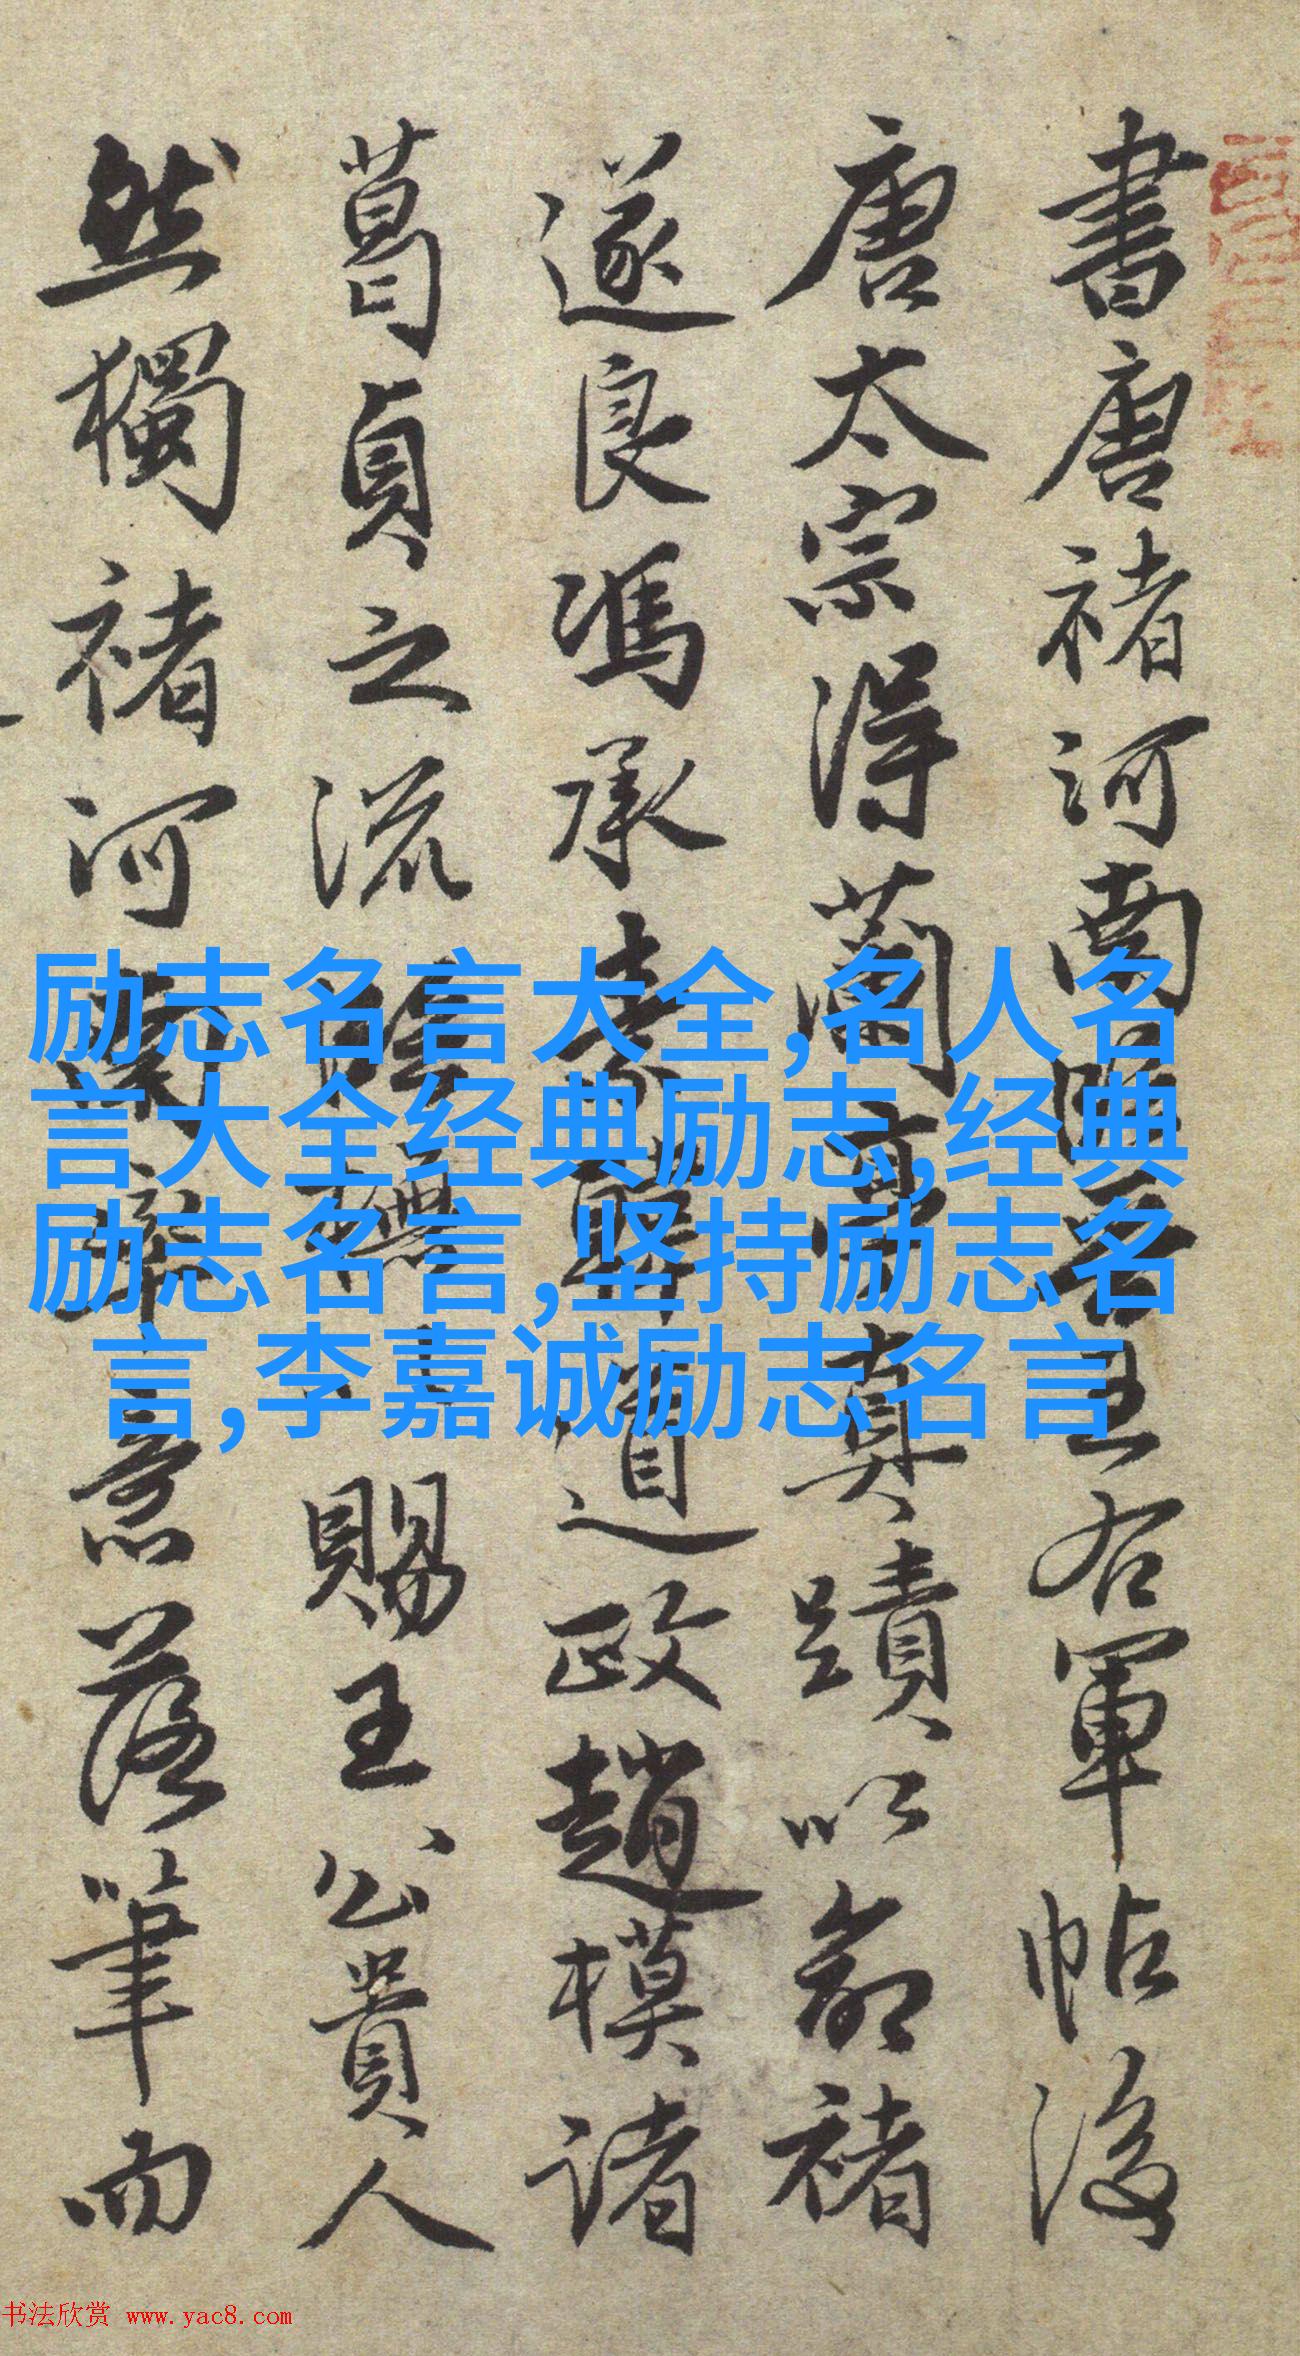 書唐褚河南臨晉王右軍帖後
唐太宗得蘭亭真蹟以命褚
遂良馮承素韓道政趙模諸
葛貞之流臨橅以賜王公貴人
然獨褚河南意落筆而
励志名言大全,名人名
言大全经典励志,经典
励志名言,坚持励志名
言,李嘉诚励志名言
书法欣赏 www.yac8.com